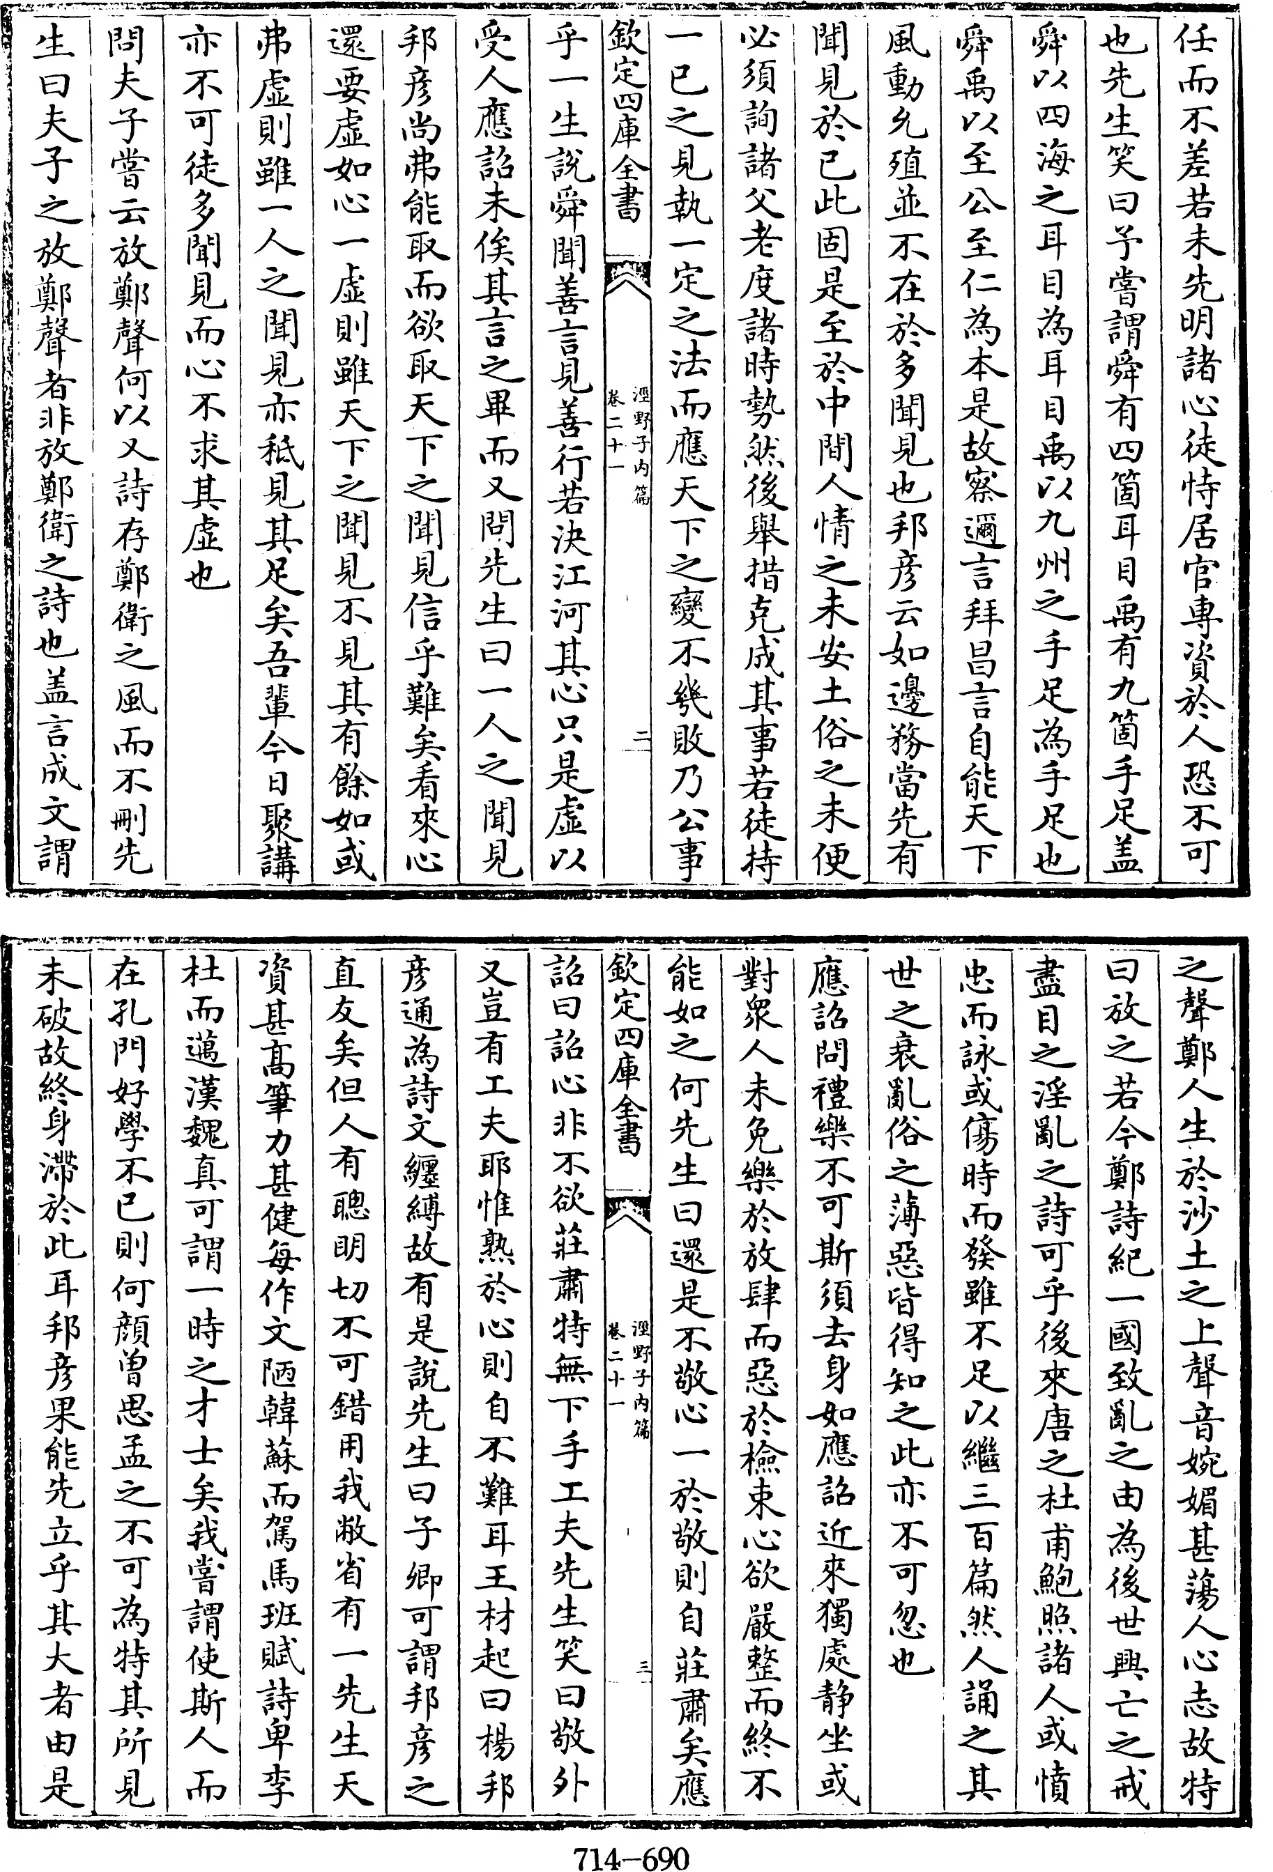 任而不差若未先明諸心徒恃居官專資於人恐不可
也先生笑曰予嘗謂舜有四箇耳目禹有九箇手足盖
舜以四海之耳目為耳目禹以九州之手足為手足也
舜禹以至公至仁為本是故察邇言拜昌言自能天下
風動允殖並不在於多聞見也邦彦云如邊務當先有
聞見於已此固是至於中間人情之未安土俗之未便
必須詢諸父老度諸時勢然後舉措克成其事若徒持
一已之見執一定之法而應天下之變不幾敗乃公事
欽定四庫全書
涇野子内篇
卷二十一
二
乎一生説舜聞善言見善行若決江河其心只是虚以
受人應詔未俟其言之畢而又問先生曰一人之聞見
邦彦尚弗能取而欲取天下之聞見信乎難矣看來心
還要虚如心一虚則雖天下之聞見不見其有餘如或
弗虚則雖一人之聞見亦秪見其足矣吾輩今日聚講
亦不可徒多聞見而心不求其虚也
問夫子嘗云放鄭聲何以又詩存鄭衛之風而不刪先
生曰夫子之放鄭聲者非放鄭衛之詩也盖言成文謂
之聲鄭人生於沙土之上聲音婉媚甚蕩人心志故特
曰放之若今鄭詩紀一國致亂之由為後世興亡之戒
盡目之淫亂之詩可乎後來唐之杜甫鮑照諸人或憤
忠而詠或傷時而發雖不足以繼三百篇然人誦之其
世之衰亂俗之薄惡皆得知之此亦不可忽也
應詔問禮樂不可斯須去身如應詔近來獨處静坐或
對衆人未免樂於放肆而惡於檢束心欲嚴整而終不
能如之何先生曰還是不敬心一於敬則自莊肅矣應
欽定四庫全書
涇野子内篇
卷二十一
三
詔曰詔心非不欲莊肅特無下手工夫先生笑曰敬外
又豈有工夫耶惟熟於心則自不難耳王材起曰楊邦
彦通為詩文纏縛故有是説先生曰子卿可謂邦彦之
直友矣但人有聰明切不可錯用我敝省有一先生天
資甚髙筆力甚健每作文陋韓蘇而駕馬班賦詩卑李
杜而邁漢魏真可謂一時之才士矣我嘗謂使斯人而
在孔門好學不已則何顔曾思孟之不可為特其所見
未破故終身滯於此耳邦彦果能先立乎其大者由是
714-690